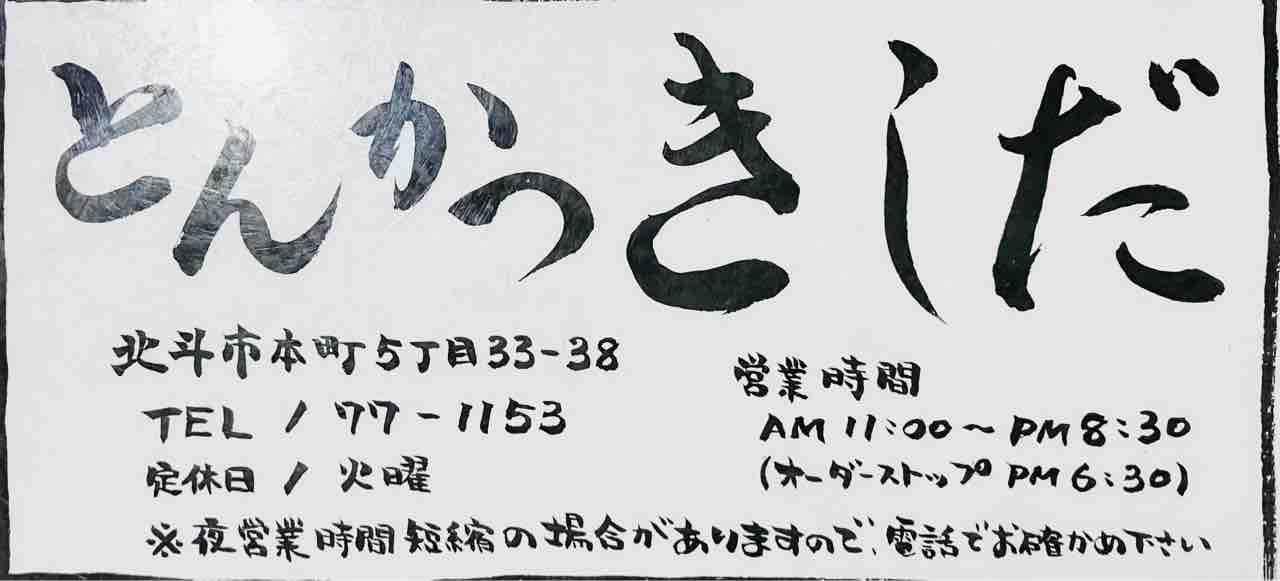 とんかつきしだ
北斗市本町5丁目33-38
TEL / 77-1153
定休日 / 火曜
営業時間
AM 11:00～PM 8:30
(オーダーストップ PM 6:30)
※夜営業時間短縮の場合がありますので、電話でお確かめ下さい